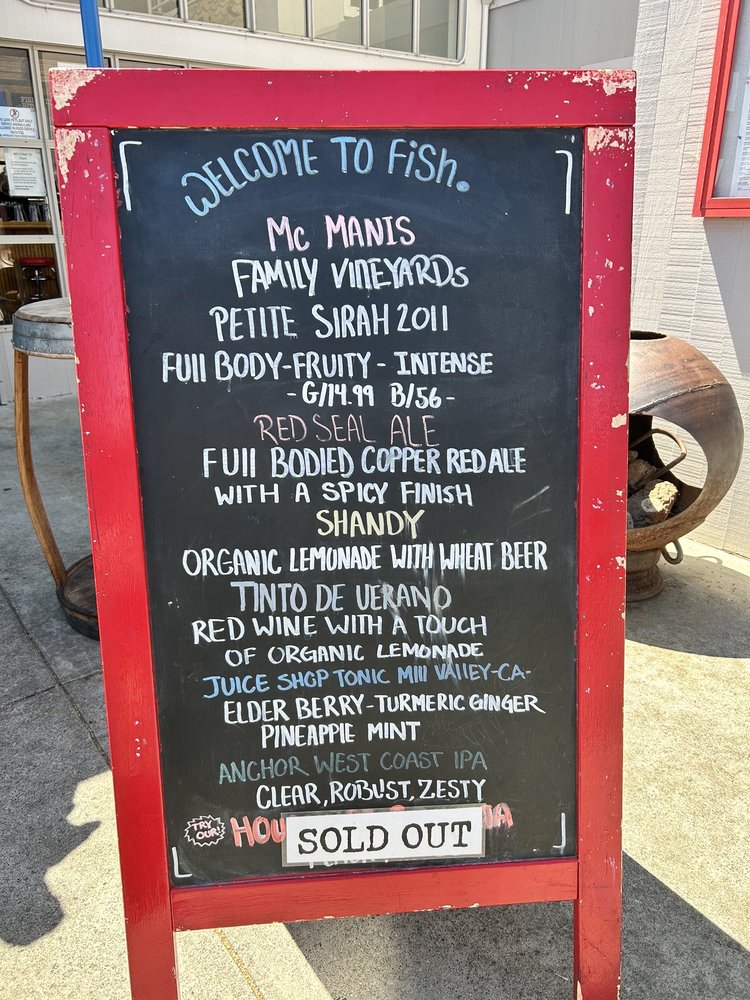 WELCOME TO FiSh.
Mc MANIS
FAMILY VINEYARDs
PETITE SIRAH 2011
FUll BODY-FRUITY - INTENSE
- G/14.99 B/56 -
RED SEAL ALE
FUll BODIED COPPER RED ALE
WITH A SPICY FINISH
SHANDY
ORGANIC LEMONADE WITH WHEAT BEER
TINTO DE VERANO
RED WINE WITH A TOUCH
OF ORGANIC LEMONADE
JUICE SHOP TONIC MIll VAllEY-CA-
ELDER BERRY-TURMERIC GINGER
PINEAPPlE MINT
ANCHOR WEST COAST IPA
CLEAR, ROBUST, ZESTY
TRY OUR!
SOLD OUT